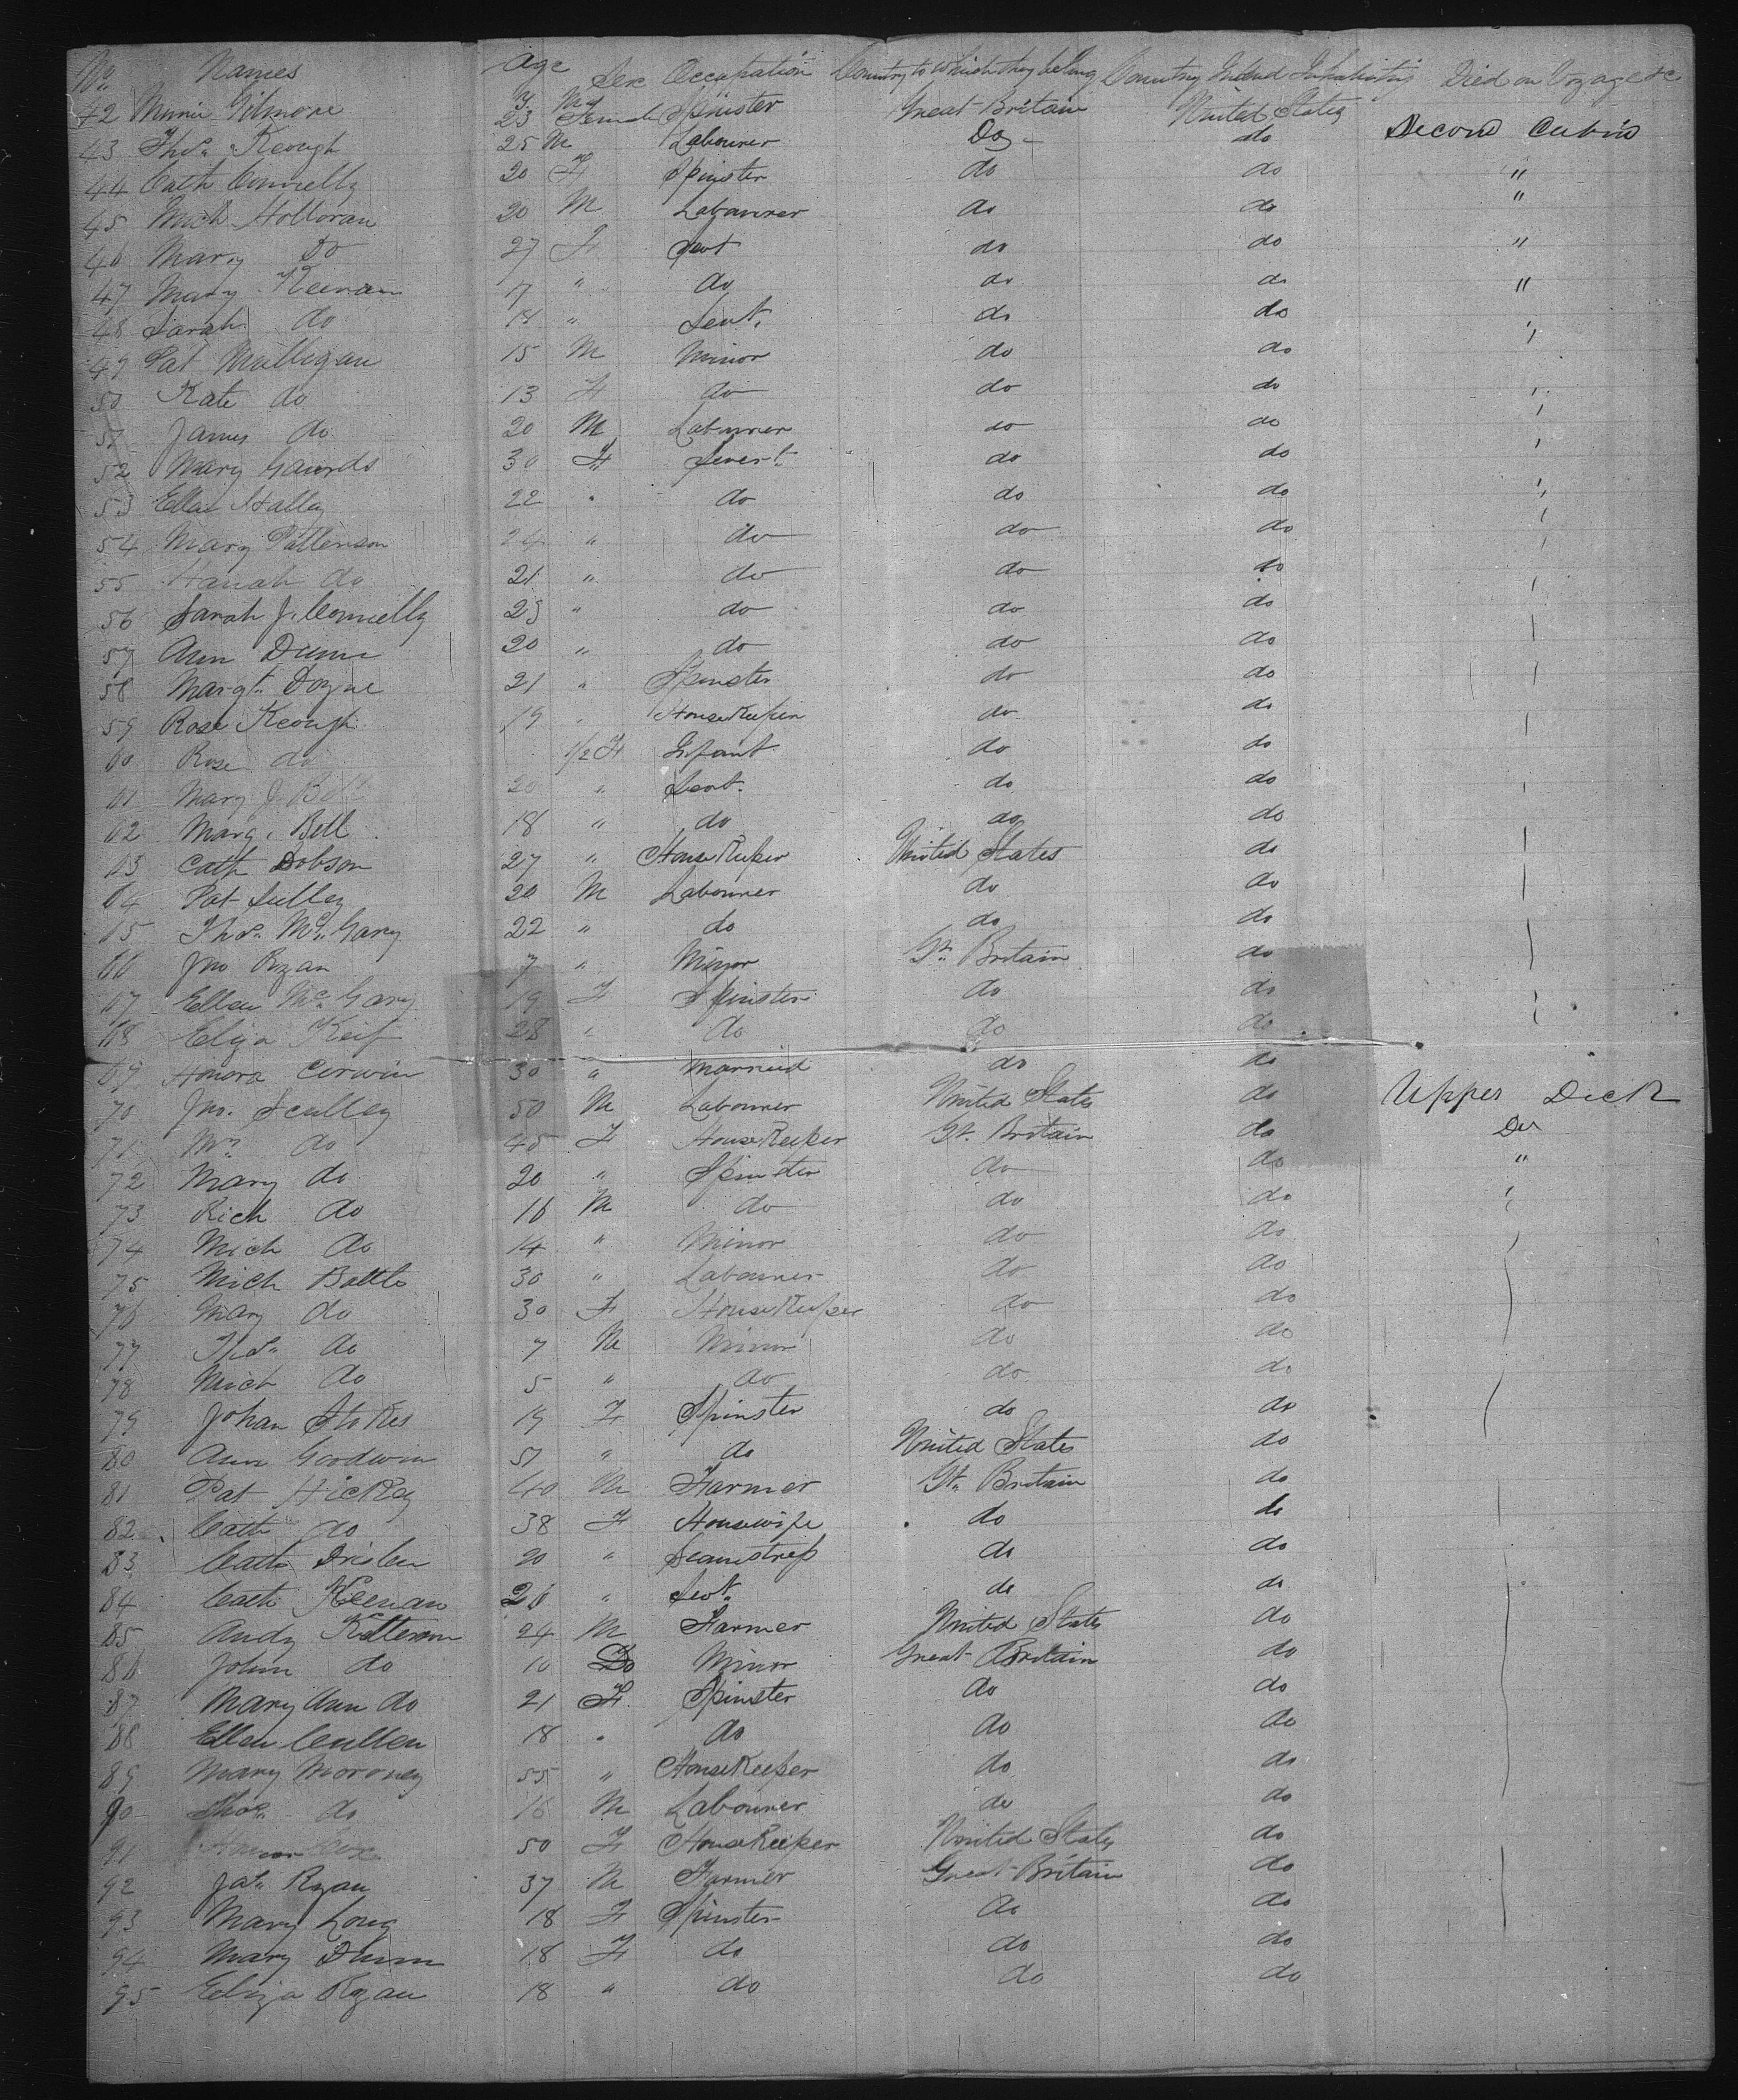 No. Names Age Sex Occupation Country to which they belong Country Intend Inhabiting Died on Voyage &c
Y. M
42 Minnie Gilmore 23 Female Spinster Great Britain United States
43 Thos. Keough 25 M Labourer Do do Second Cabin
44 Cath Connelly 20 F Spinster do do "
45 Mich Holloran 20 M Labourer do do "
46 Mary Do 27 F Sevt do do "
47 Mary Keenan 17 " do do do "
48 Sarah do " Sevt. do do "
49 Pat Mulligan 15 M Minor do do
50 Kate do 13 F do do do
51 James do 20 M Labourer do do
52 Mary 30 F Servt. do do
53 Ellen Halley 22 " do do do
54 Mary Patterson 24 " do do do
55 Hanah do 21 " do do do
56 Sarah J. Connelly 23 " do do do
57 Ann Dunn 20 " do do do
58 Margt. Doyne 21 " Spinster do do
59 Rose Keough 19 " HouseKeeper do do
60 Rose do 1/2 F Infant do do
61 Mary J Bell 20 " Sevt. do do
62 Marg. Bell 18 " do do do
63 Cath Dobson 27 " HouseKeeper United States do
64 Pat Sulley 20 M Labourer do do
65 Thos. Mc. Gary 22 " do do do
66 Jno Ryan 7 " Minor Gt. Britain do
67 Ellen Mc. Gary 19 F Spinster do do
68 Eliza Keif 28 " do do do
69 Honora Corwin 30 " Married do do
70 Jno. Sculley 50 M Labourer United States do Upper Deck
71 Mrs do 45 F HouseKeeper Gt. Britain do Do
72 Mary do 20 " Spinster do do "
73 Rich do 16 M do do do
74 Mich do 14 " Minor do do
75 Mich Battle 30 " Labourer do do
76 Mary do 30 F HouseKeeper do do
77 Thos. do 7 M Minor do do
78 Mich do 5 " do do do
79 Johan Stokes 19 F Spinster do do
80 Ann Goodwin 51 " do United States do
81 Pat Hickey 40 M Farmer Gt. Britain do
82 Cath do 38 F Housewife do do
83 Cath Drislen 20 " Seamstress do do
84 Cath Keenan 26 " Sevt. do do
85 Andy 24 M Farmer United States do
86 John do 10 Do Minor Great Britain do
87 Mary Ann do 21 F Spinster do do
88 Ellen Cullen 18 " do do do
89 Mary Moroney 55 " HouseKeeper do do
90 Thos. do 16 M Labourer do do
91 50 F HouseKeeper United States do
92 Jas. Ryan 37 M Farmer Great Britain do
93 Mary Long 18 F Spinster do do
94 Mary Dunn 18 F do do do
95 Eliza Ryan 18 " do do do